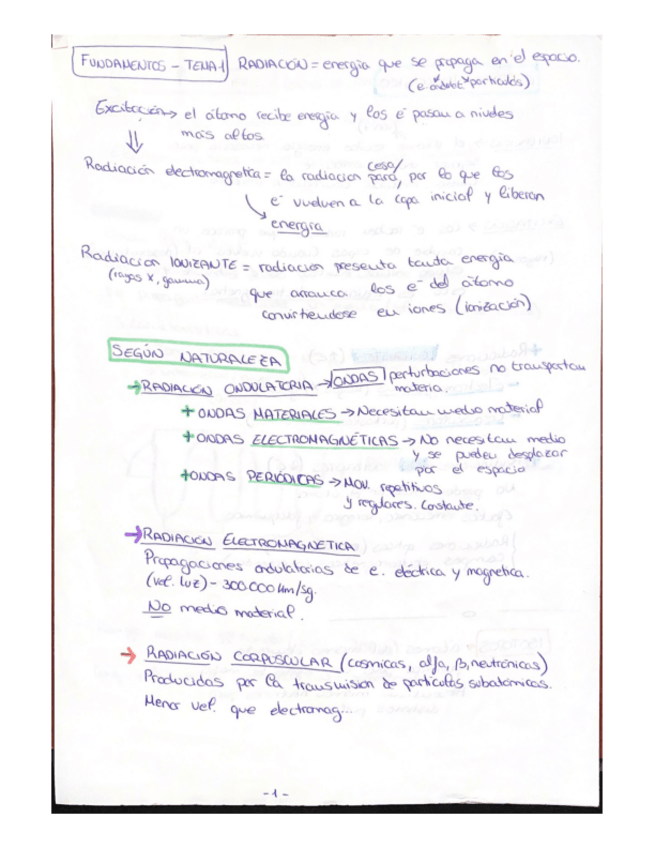 FUNDAMENTOS - TEMA 1 RADIACIÓN = energía que se propaga en el espacio.
(e. ondas partículas)
Excitación → el átomo recibe energía y los e⁻ pasan a niveles
más altos
⇓
cesa/
Radiación electromagnética = la radiación para, por lo que los
e⁻ vuelven a la capa inicial y liberan
energía
Radiación IONIZANTE = radiación presenta tanta energía
(rayos X, gamma)
que arranca los e⁻ del átomo
convirtiendose en iones (ionización)
SEGÚN NATURALEZA
→ RADIACIÓN ONDULATORIA → ONDAS perturbaciones no transportan
materia.
+ ONDAS MATERIALES → Necesitan medio material
+ ONDAS ELECTROMAGNÉTICAS → No necesitan medio
y se pueden desplazar
por el espacio
+ ONDAS PERIÓDICAS → Mov. repetitivos
y regulares. Constante.
→ RADIACIÓN ELECTROMAGNETICA
Propagaciones ondulatorias de e. eléctrica y magnetica.
(vel. luz) - 300.000 km/sg.
No medio material.
→ RADIACIÓN CORPUSCULAR (cósmicas, alfa, β, neutrónicas)
Producidas por la transmisión de partículas subatómicas.
Menor vel. que electromag...
- 1 -